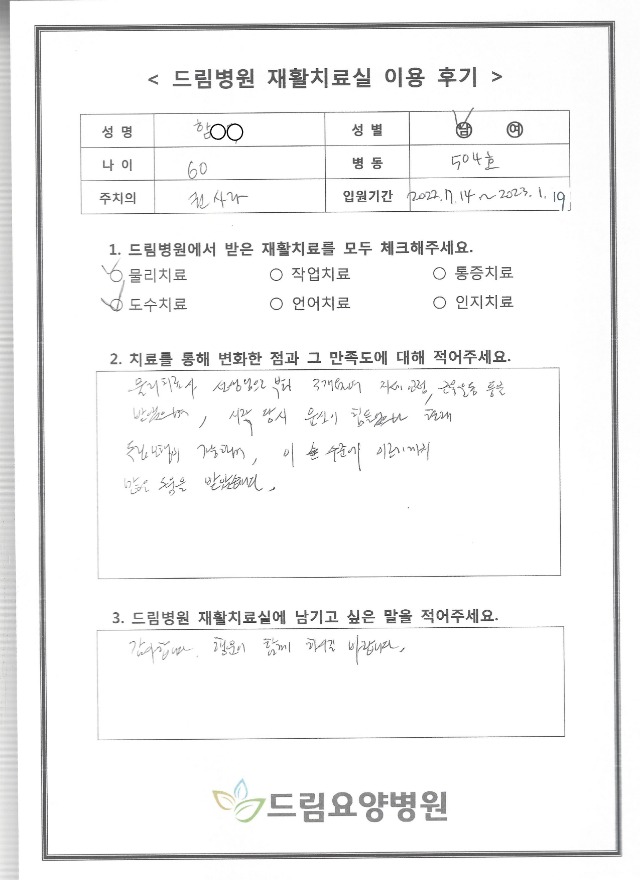 < 드림병원 재활치료실 이용 후기 >
성 명 함○○ 성 별 남 여
나 이 60 병 동 504호
주치의 입원기간 2022.7.14 ~ 2023.1.19
1. 드림병원에서 받은 재활치료를 모두 체크해주세요.
○ 물리치료 ○ 작업치료 ○ 통증치료
○ 도수치료 ○ 언어치료 ○ 인지치료
2. 치료를 통해 변화한 점과 그 만족도에 대해 적어주세요.
물리치료사 선생님으로부터 자세교정, 근육운동 등을
받았으며, 시작 당시 힘들었으나 현재
독립보행이 가능하며, 이 수준에 이르기까지
많은 도움을 받았습니다.
3. 드림병원 재활치료실에 남기고 싶은 말을 적어주세요.
감사합니다. 행운이 함께 하시길 바랍니다.
드림요양병원